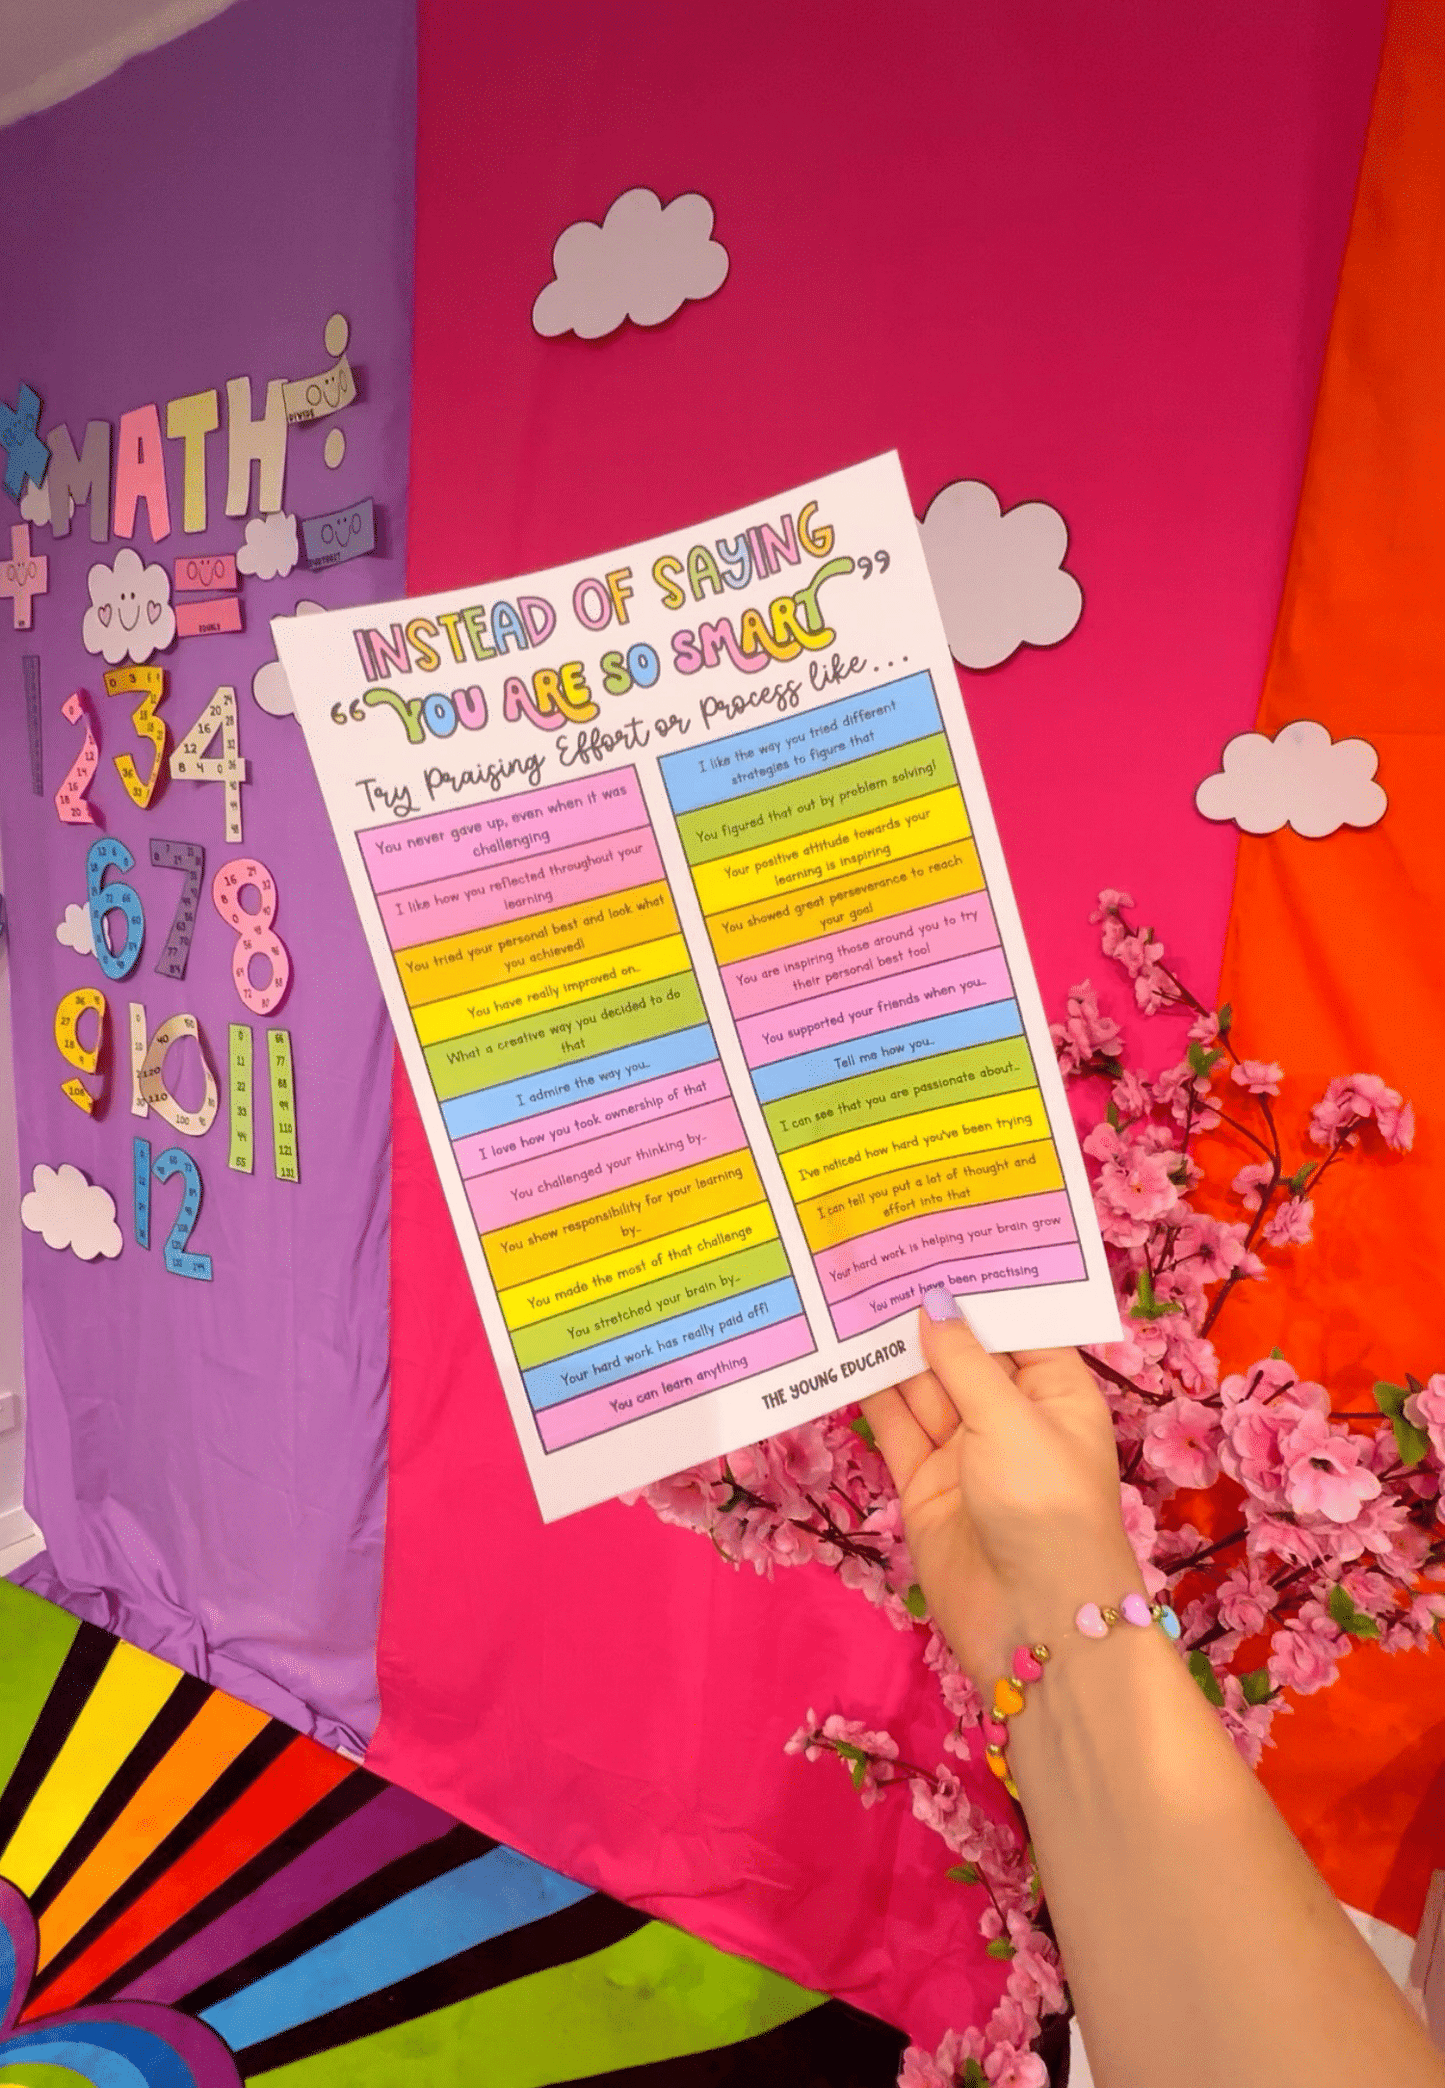 MATH
DIVIDE
EQUALS
INSTEAD OF SAYING
“YOU ARE SO SMART”
Try Praising Effort or Process like...
You never gave up, even when it was
challenging
I like how you reflected throughout your
learning
You tried your personal best and look what
you achieved!
You have really improved on...
What a creative way you decided to do
that
I admire the way you...
I love how you took ownership of that
You challenged your thinking by...
You show responsibility for your learning
by...
You made the most of that challenge
You stretched your brain by...
Your hard work has really paid off!
You can learn anything
I like the way you tried different
strategies to figure that
You figured that out by problem solving!
Your positive attitude towards your
learning is inspiring
You showed great perseverance to reach
your goal
You are inspiring those around you to try
their personal best too!
You supported your friends when you...
Tell me how you...
I can see that you are passionate about...
I've noticed how hard you've been trying
I can tell you put a lot of thought and
effort into that
Your hard work is helping your brain grow
You must have been practising
THE YOUNG EDUCATOR